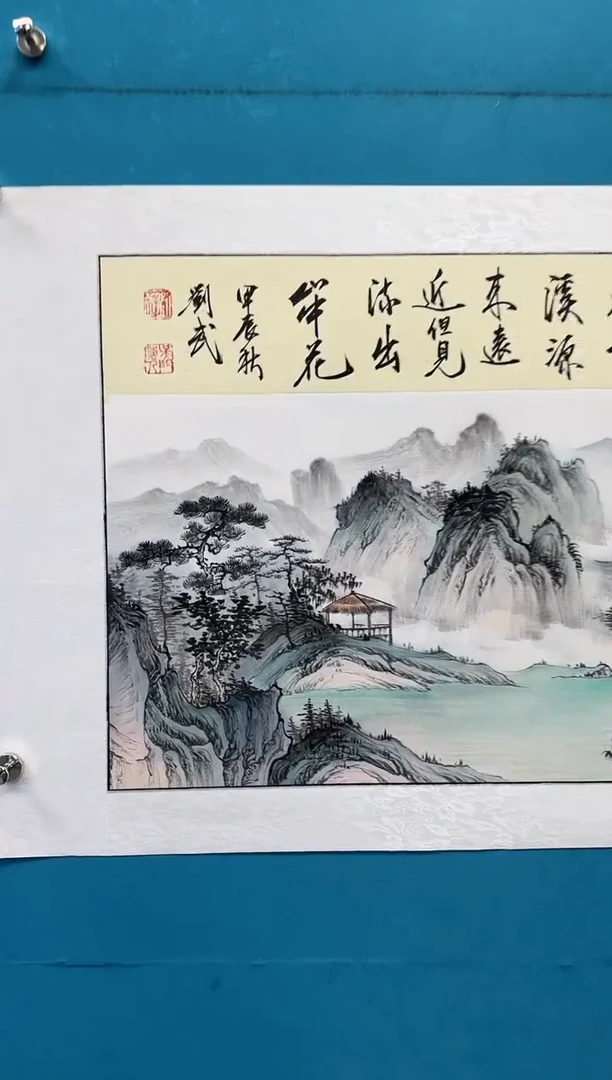 溪源
来遠
近但見
流出
山中花
甲辰秋
劉武